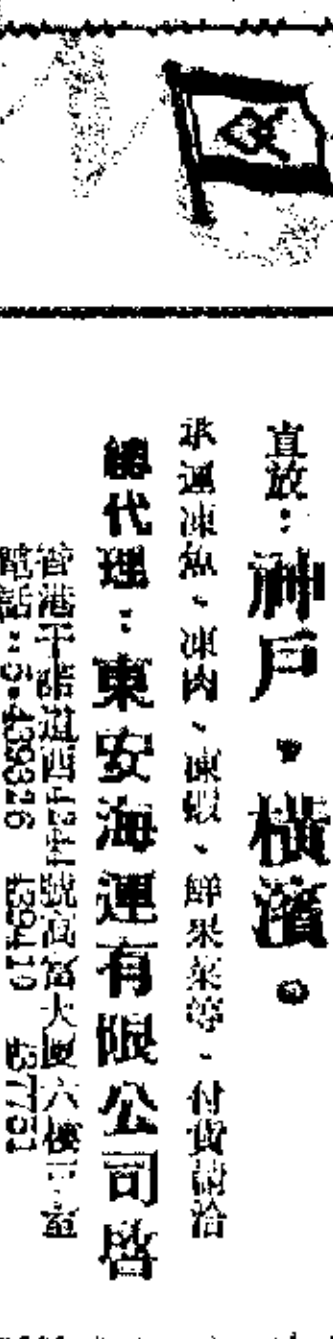 直放：神戶，橫濱。
承運凍魚、凍肉、凍蝦、鮮果菜等、付貨請洽
總代理：東安海運有限公司啓
香港干諾道西 號高富大廈六樓 室
電話：5-439316 439419